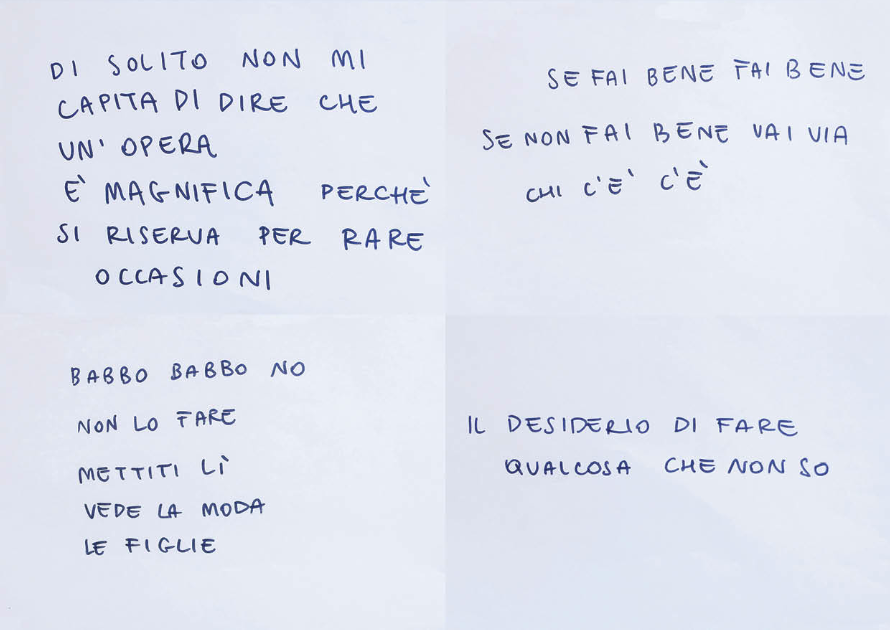 DI SOLITO NON MI
CAPITA DI DIRE CHE
UN' OPERA
E' MAGNIFICA PERCHE'
SI RISERVA PER RARE
OCCASIONI
SE FAI BENE FAI BENE
SE NON FAI BENE VAI VIA
CHI C'E' C'È
BABBO BABBO NO
NON LO FARE
METTITI LÌ
VEDE LA MODA
LE FIGLIE
IL DESIDERIO DI FARE
QUALCOSA CHE NON SO